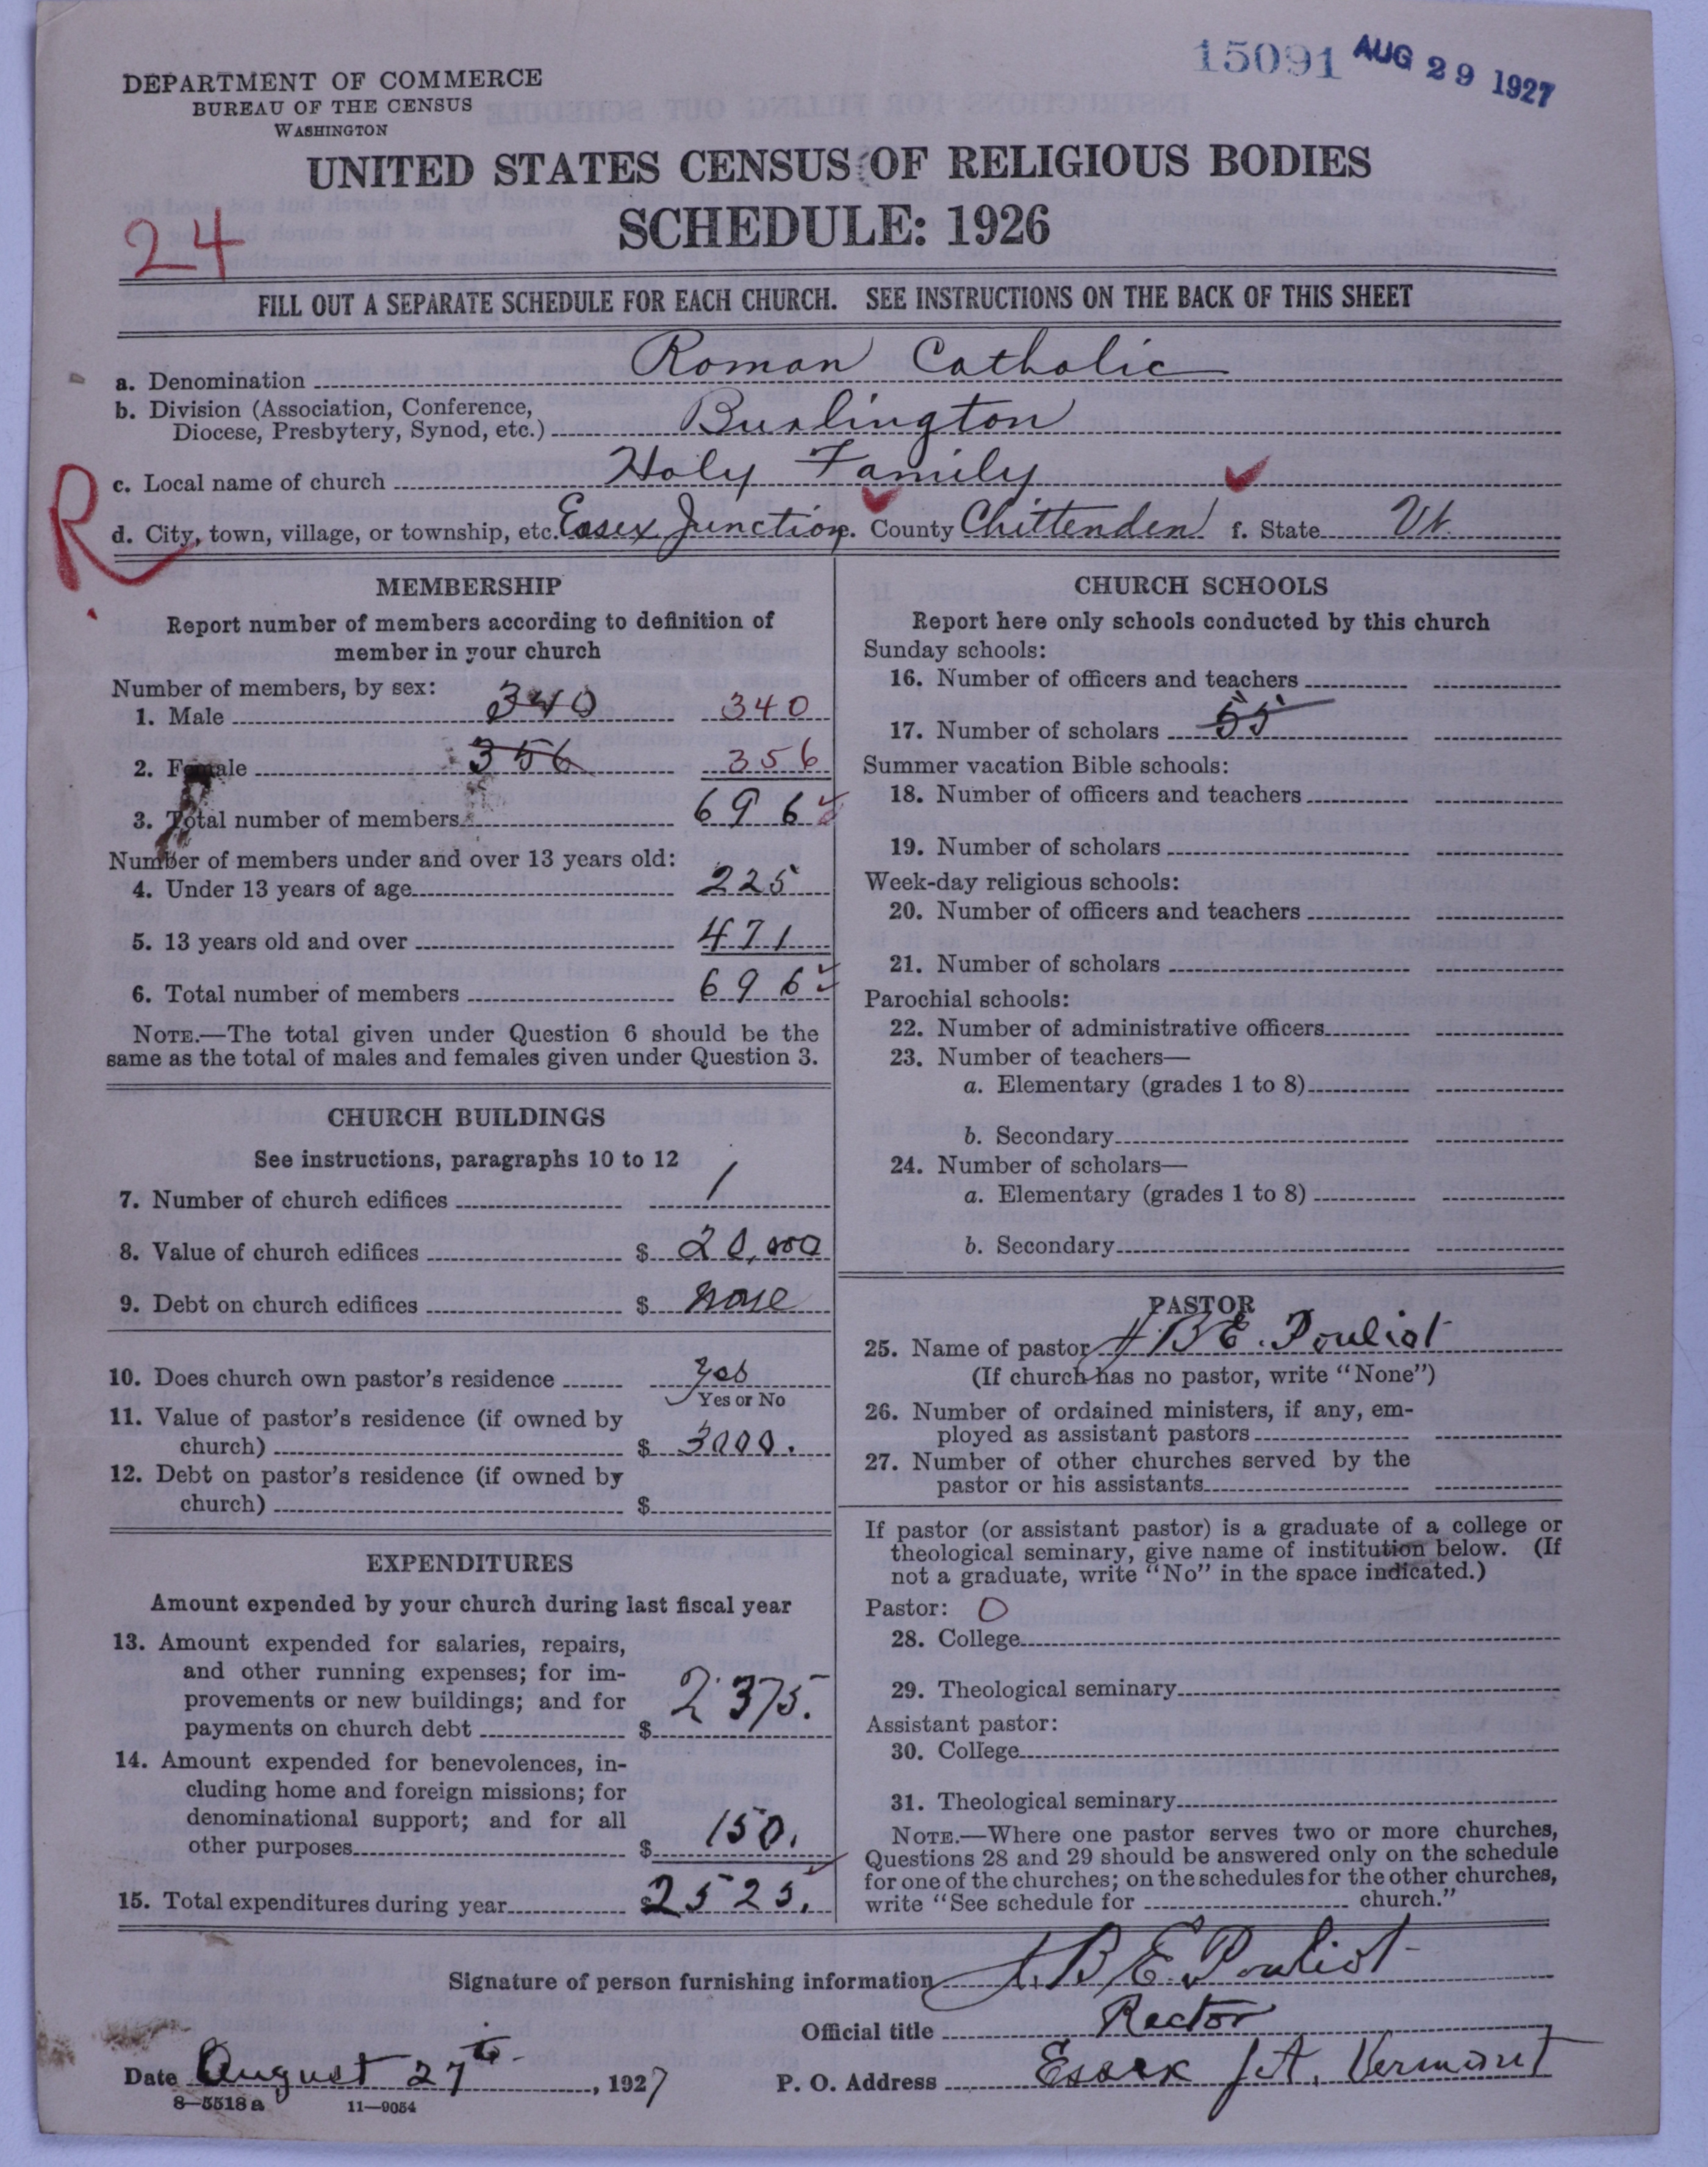 15091 AUG 29 1927
DEPARTMENT OF COMMERCE
BUREAU OF THE CENSUS
WASHINGTON
UNITED STATES CENSUS OF RELIGIOUS BODIES
SCHEDULE: 1926
24
FILL OUT A SEPARATE SCHEDULE FOR EACH CHURCH. SEE INSTRUCTIONS ON THE BACK OF THIS SHEET
a. Denomination Roman Catholic
b. Division (Association, Conference,
Diocese, Presbytery, Synod, etc.) Burlington
c. Local name of church Holy Family
R
d. City, town, village, or township, etc. Essex Junction e. County Chittenden f. State Vt.
MEMBERSHIP
Report number of members according to definition of
member in your church
Number of members, by sex:
1. Male 340 340
2. Female 356 356
3. Total number of members 696
Number of members under and over 13 years old:
4. Under 13 years of age 225
5. 13 years old and over 471
6. Total number of members 696
NOTE.—The total given under Question 6 should be the
same as the total of males and females given under Question 3.
CHURCH BUILDINGS
See instructions, paragraphs 10 to 12
7. Number of church edifices 1
8. Value of church edifices $ 20,000
9. Debt on church edifices $ none
10. Does church own pastor's residence yes
Yes or No
11. Value of pastor's residence (if owned by
church) $ 3000.
12. Debt on pastor's residence (if owned by
church) $
EXPENDITURES
Amount expended by your church during last fiscal year
13. Amount expended for salaries, repairs,
and other running expenses; for im-
provements or new buildings; and for
payments on church debt $ 2375.
14. Amount expended for benevolences, in-
cluding home and foreign missions; for
denominational support; and for all
other purposes $ 150.
15. Total expenditures during year $ 2525.
CHURCH SCHOOLS
Report here only schools conducted by this church
Sunday schools:
16. Number of officers and teachers
17. Number of scholars 55
Summer vacation Bible schools:
18. Number of officers and teachers
19. Number of scholars
Week-day religious schools:
20. Number of officers and teachers
21. Number of scholars
Parochial schools:
22. Number of administrative officers
23. Number of teachers—
a. Elementary (grades 1 to 8)
b. Secondary
24. Number of scholars—
a. Elementary (grades 1 to 8)
b. Secondary
PASTOR
25. Name of pastor J. B E. Pouliot
(If church has no pastor, write "None")
26. Number of ordained ministers, if any, em-
ployed as assistant pastors
27. Number of other churches served by the
pastor or his assistants
If pastor (or assistant pastor) is a graduate of a college or
theological seminary, give name of institution below. (If
not a graduate, write "No" in the space indicated.)
Pastor: O
28. College
29. Theological seminary
Assistant pastor:
30. College
31. Theological seminary
NOTE.—Where one pastor serves two or more churches,
Questions 28 and 29 should be answered only on the schedule
for one of the churches; on the schedules for the other churches,
write "See schedule for church."
Signature of person furnishing information J. B E. Pouliot
Official title Rector
Date August 27th, 1927 P. O. Address Essex Jct. Vermont
8—5518a 11—9054